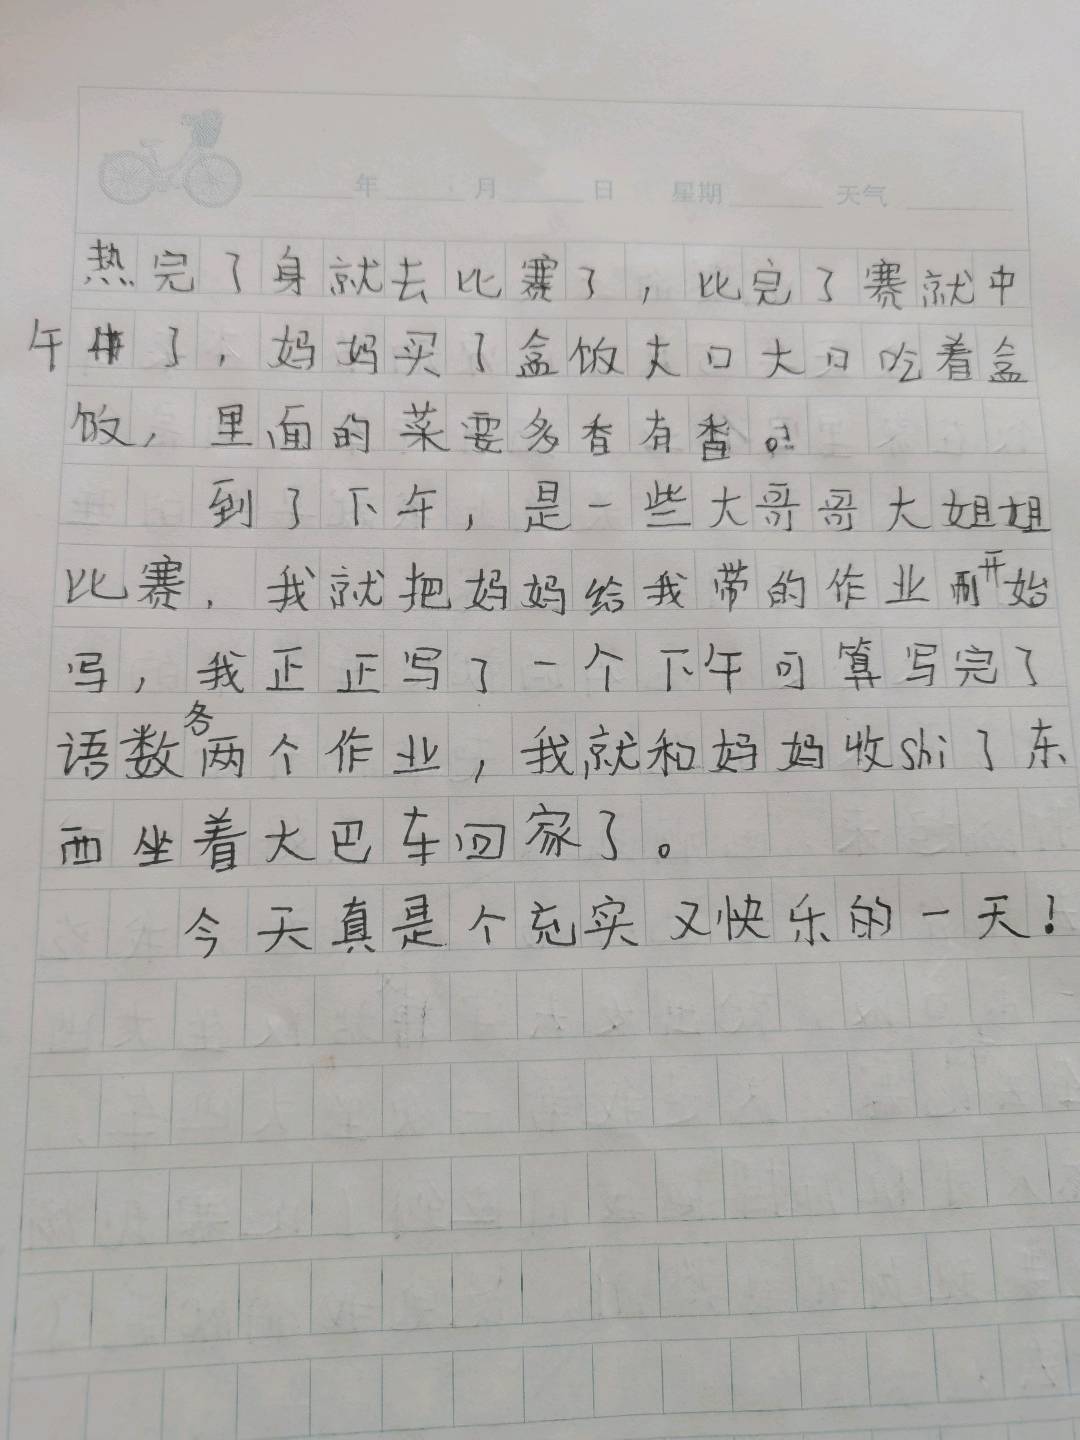 年 月 日 星期 天气
热完了身就去比赛了，比完了赛就中
午了，妈妈买了盒饭大口大口吃着盒
饭，里面的菜要多香有香。
到了下午，是一些大哥哥大姐姐
比赛，我就把妈妈给我带的作业开始
写，我正正写了一个下午可算写完了
语数各两个作业，我就和妈妈收shi了东
西坐着大巴车回家了。
今天真是个充实又快乐的一天！